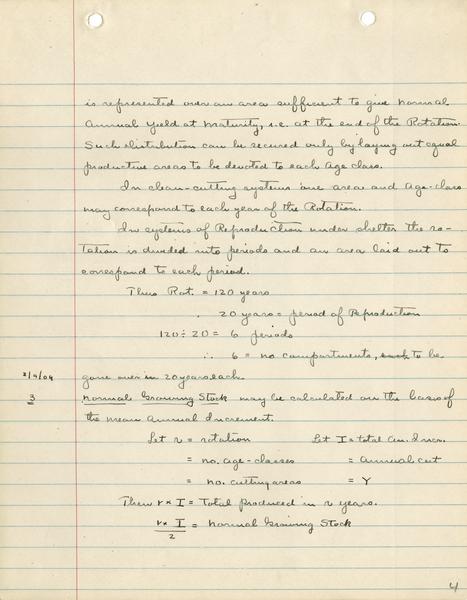 is represented over an area sufficient to give normal
Annual Yield at Maturity, i.e. at the end of the Rotation.
Such distribution can be secured only by laying out equal
productive areas to be devoted to each Age class.
In clean-cutting systems one area and Age-class
may correspond to each year of the Rotation.
In systems of Reproduction under shelter the ro-
tation is divided into periods and an area laid out to
correspond to each period.
Thus Rot. = 120 years
20 years = period of Reproduction
120 ÷ 20 = 6 periods
∴ 6 = no. compartments, each to be
gone over in 20 years each.
2/9/09
3
Normal Growing Stock may be calculated on the basis of
the mean Annual Increment.
Let r = rotation Let I = total An. Incr.
= no. age-classes = annual cut
= no. cutting areas = Y
Then r × I = Total produced in r years.
r × I
2
= Normal Growing Stock
4